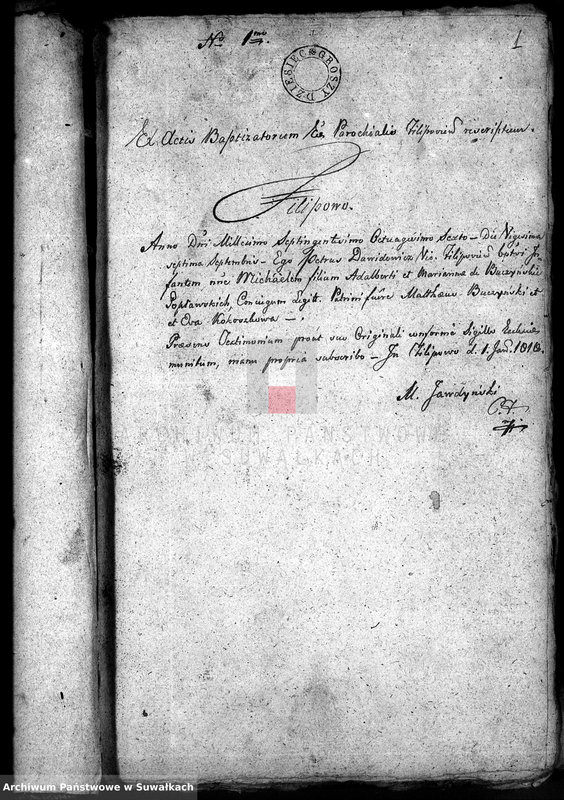 No 1mo.
1
DZIESIĘC GROSZY
Ex Actis Baptizatorum Eccl Parochialis Filipovien rescriptum.
Filipowo.
Anno Dni Millesimo Septingentesimo Octuagesimo Sexto – Die Vigesima
septima Septembris – Ego Petrus Dawidowicz Vic. Filipovien bptvi In
fantem nne Michaelem filium Adalberti et Marianna de Buczyńskie
Popławskich, Conjugum legit. Patrini fuere Mathaeus Buczyński et
et Eva Kokoszkowa –.
Praesens Testimonium prout suo Originali conforme Sigillo Ecclesiae
munitum, manu propria subscribo – In Filipowo d. 1. Jan. 1818.
M. Jawdyński
ARCHIWUM PAŃSTWOWE
W SUWAŁKACH
Archiwum Państwowe w Suwałkach